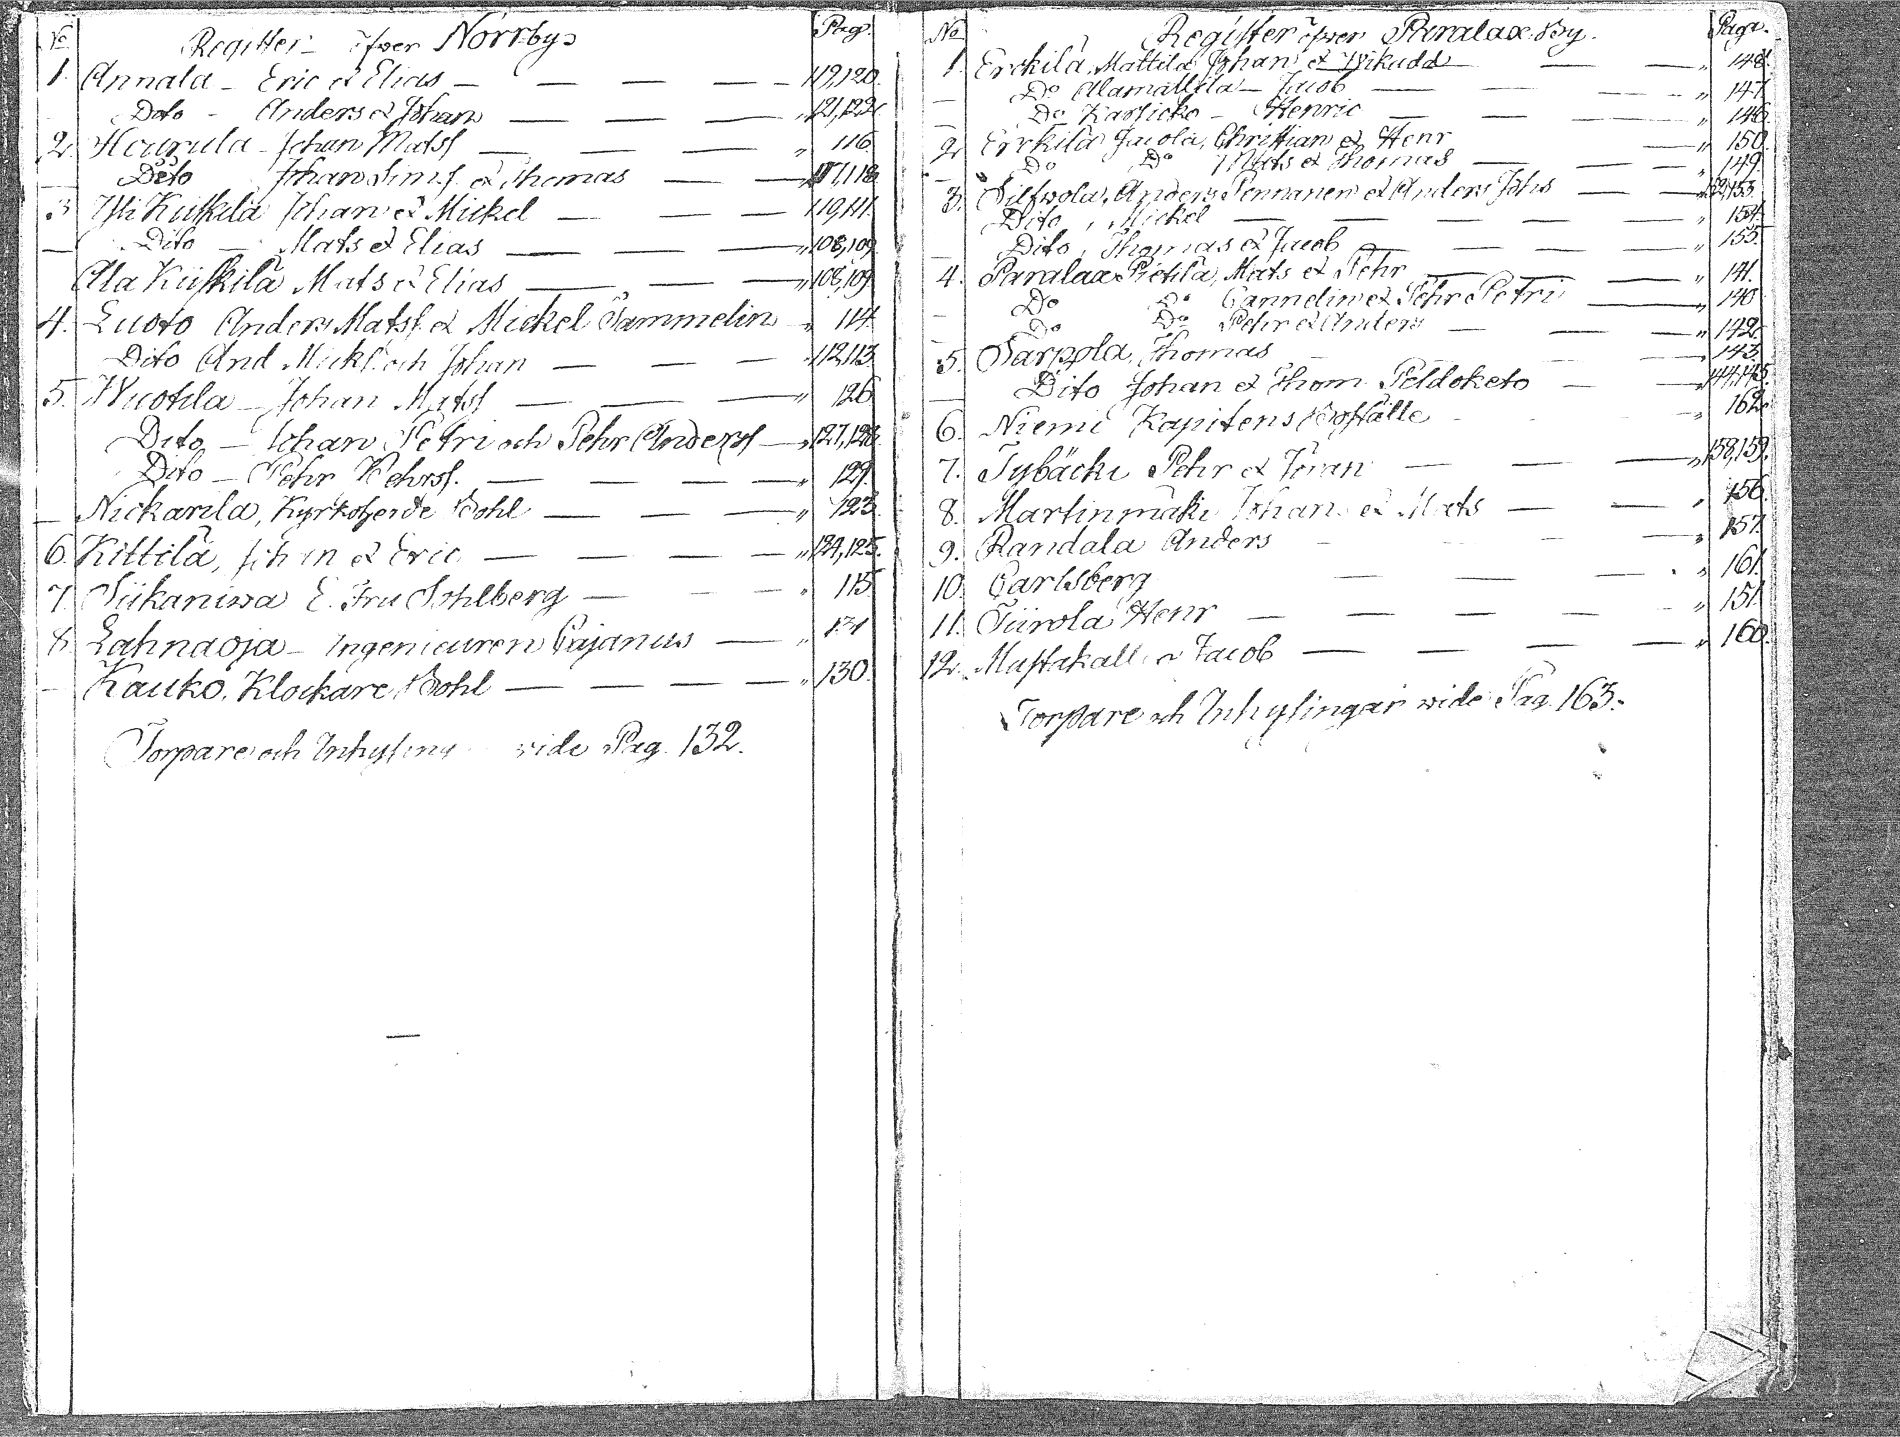 No Register öfver Norrby Pag.
1. Annala - Eric et Elias 119,120.
Dito - Anders et Johan 121,122.
2. Heurula - Johan Matss 116.
Dito Johan Sims. et Thomas 117,118.
3. Yli Kuskila Johan et Mickel
Dito - Mats et Elias 108,109.
Ala Kuskila Mats et Elias 108,109.
4. Luoto Anders Matss. et Mickel Sammelin 114.
Dito And. Mickl. och Johan 112,113.
5. Wuotila - Johan Matss 126.
Dito - Johan Petri och Pehr Anderss 127,128.
Dito - Pehr Pehrss. 129.
Nickarila, Kyrkoherde Bohl 123.
6. Kittilä, Johan et Eric 124,125.
7. Siikaniwa E. Fru Sohlberg 115.
8. Lahnaoja - Ingenieuren Cajanus 131
Kauko, Klockare Bohl 130.
Torpare och Inhysing vide Pag. 132.
No Register öfver Paralax By. Pag.
1. Erckilä Mattila, Johan et 148.
Do Alamattila - Jacob 147.
Do Karsicko - Henric 146.
2. Erckilä Juola, Christian et Henr 150.
Do Do Mats et Thomas 149.
3. Silfwola, Anders Pennanen et Anders Johs 152,153.
Dito, Mickel 154.
Dito, Thomas et Jacob 155.
4. Paralax Pietilä, Mats et Pehr 141.
Do Do Cannelin et Pehr Petri 140.
Do Do Pehr et Anders 142.
5. Sarpola, Thomas 143.
Dito Johan et Thom. Peldoketo 144,145.
6. Niemi Kapitens Boställe 162.
7. Tybäcki Pehr et Göran 158,159.
8. Martinmäki Johan et Mats 156.
9. Randala Anders 157.
10. Carlsberg 161.
11. Tiirola Henr 151.
12. Mustakallio Jacob 160.
Torpare och Inhysingar vide Pag. 163.